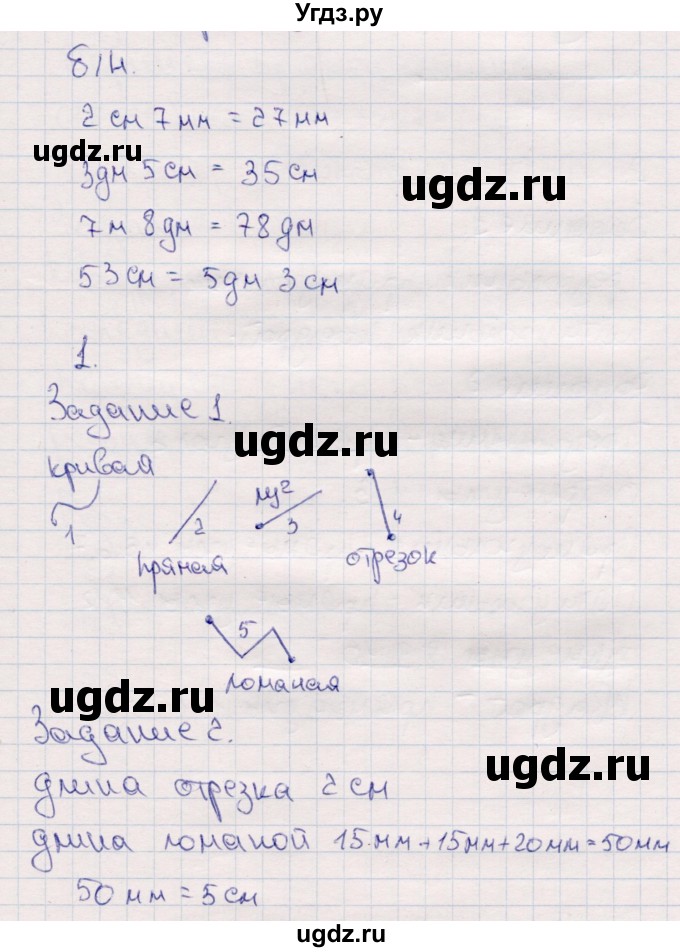 Угдз.ру
б/н.
2 см 7 мм = 27 мм
ugdz.ru
3 дм 5 см = 35 см
ugdz.ru
7 м 8 дм = 78 дм
53 см = 5 дм 3 см
1.
Задание 1.
ugdz.ru
кривая
луч
1
2
3
4
прямая
отрезок
5
ломаная
ugdz.ru
Задание 2.
ugdz.ru
длина отрезка 2 см
длина ломаной 15 мм + 15 мм + 20 мм = 50 мм
50 мм = 5 см
ugdz.ru